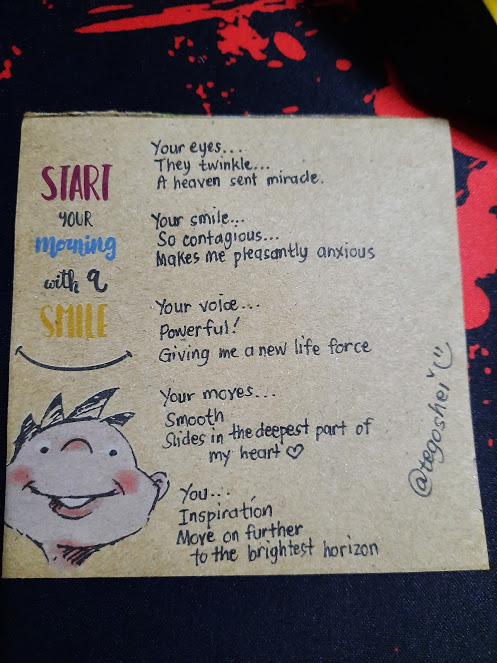 START
YOUR
morning
with a
SMILE
Your eyes....
They twinkle...
A heaven sent miracle.
Your smile...
So contagious...
Makes me pleasantly anxious
Your voice...
Powerful!
Giving me a new life force
Your moves...
Smooth
Slides in the deepest part of
my heart ♡
You...
Inspiration
Move on further
to the brightest horizon
@tegoshei